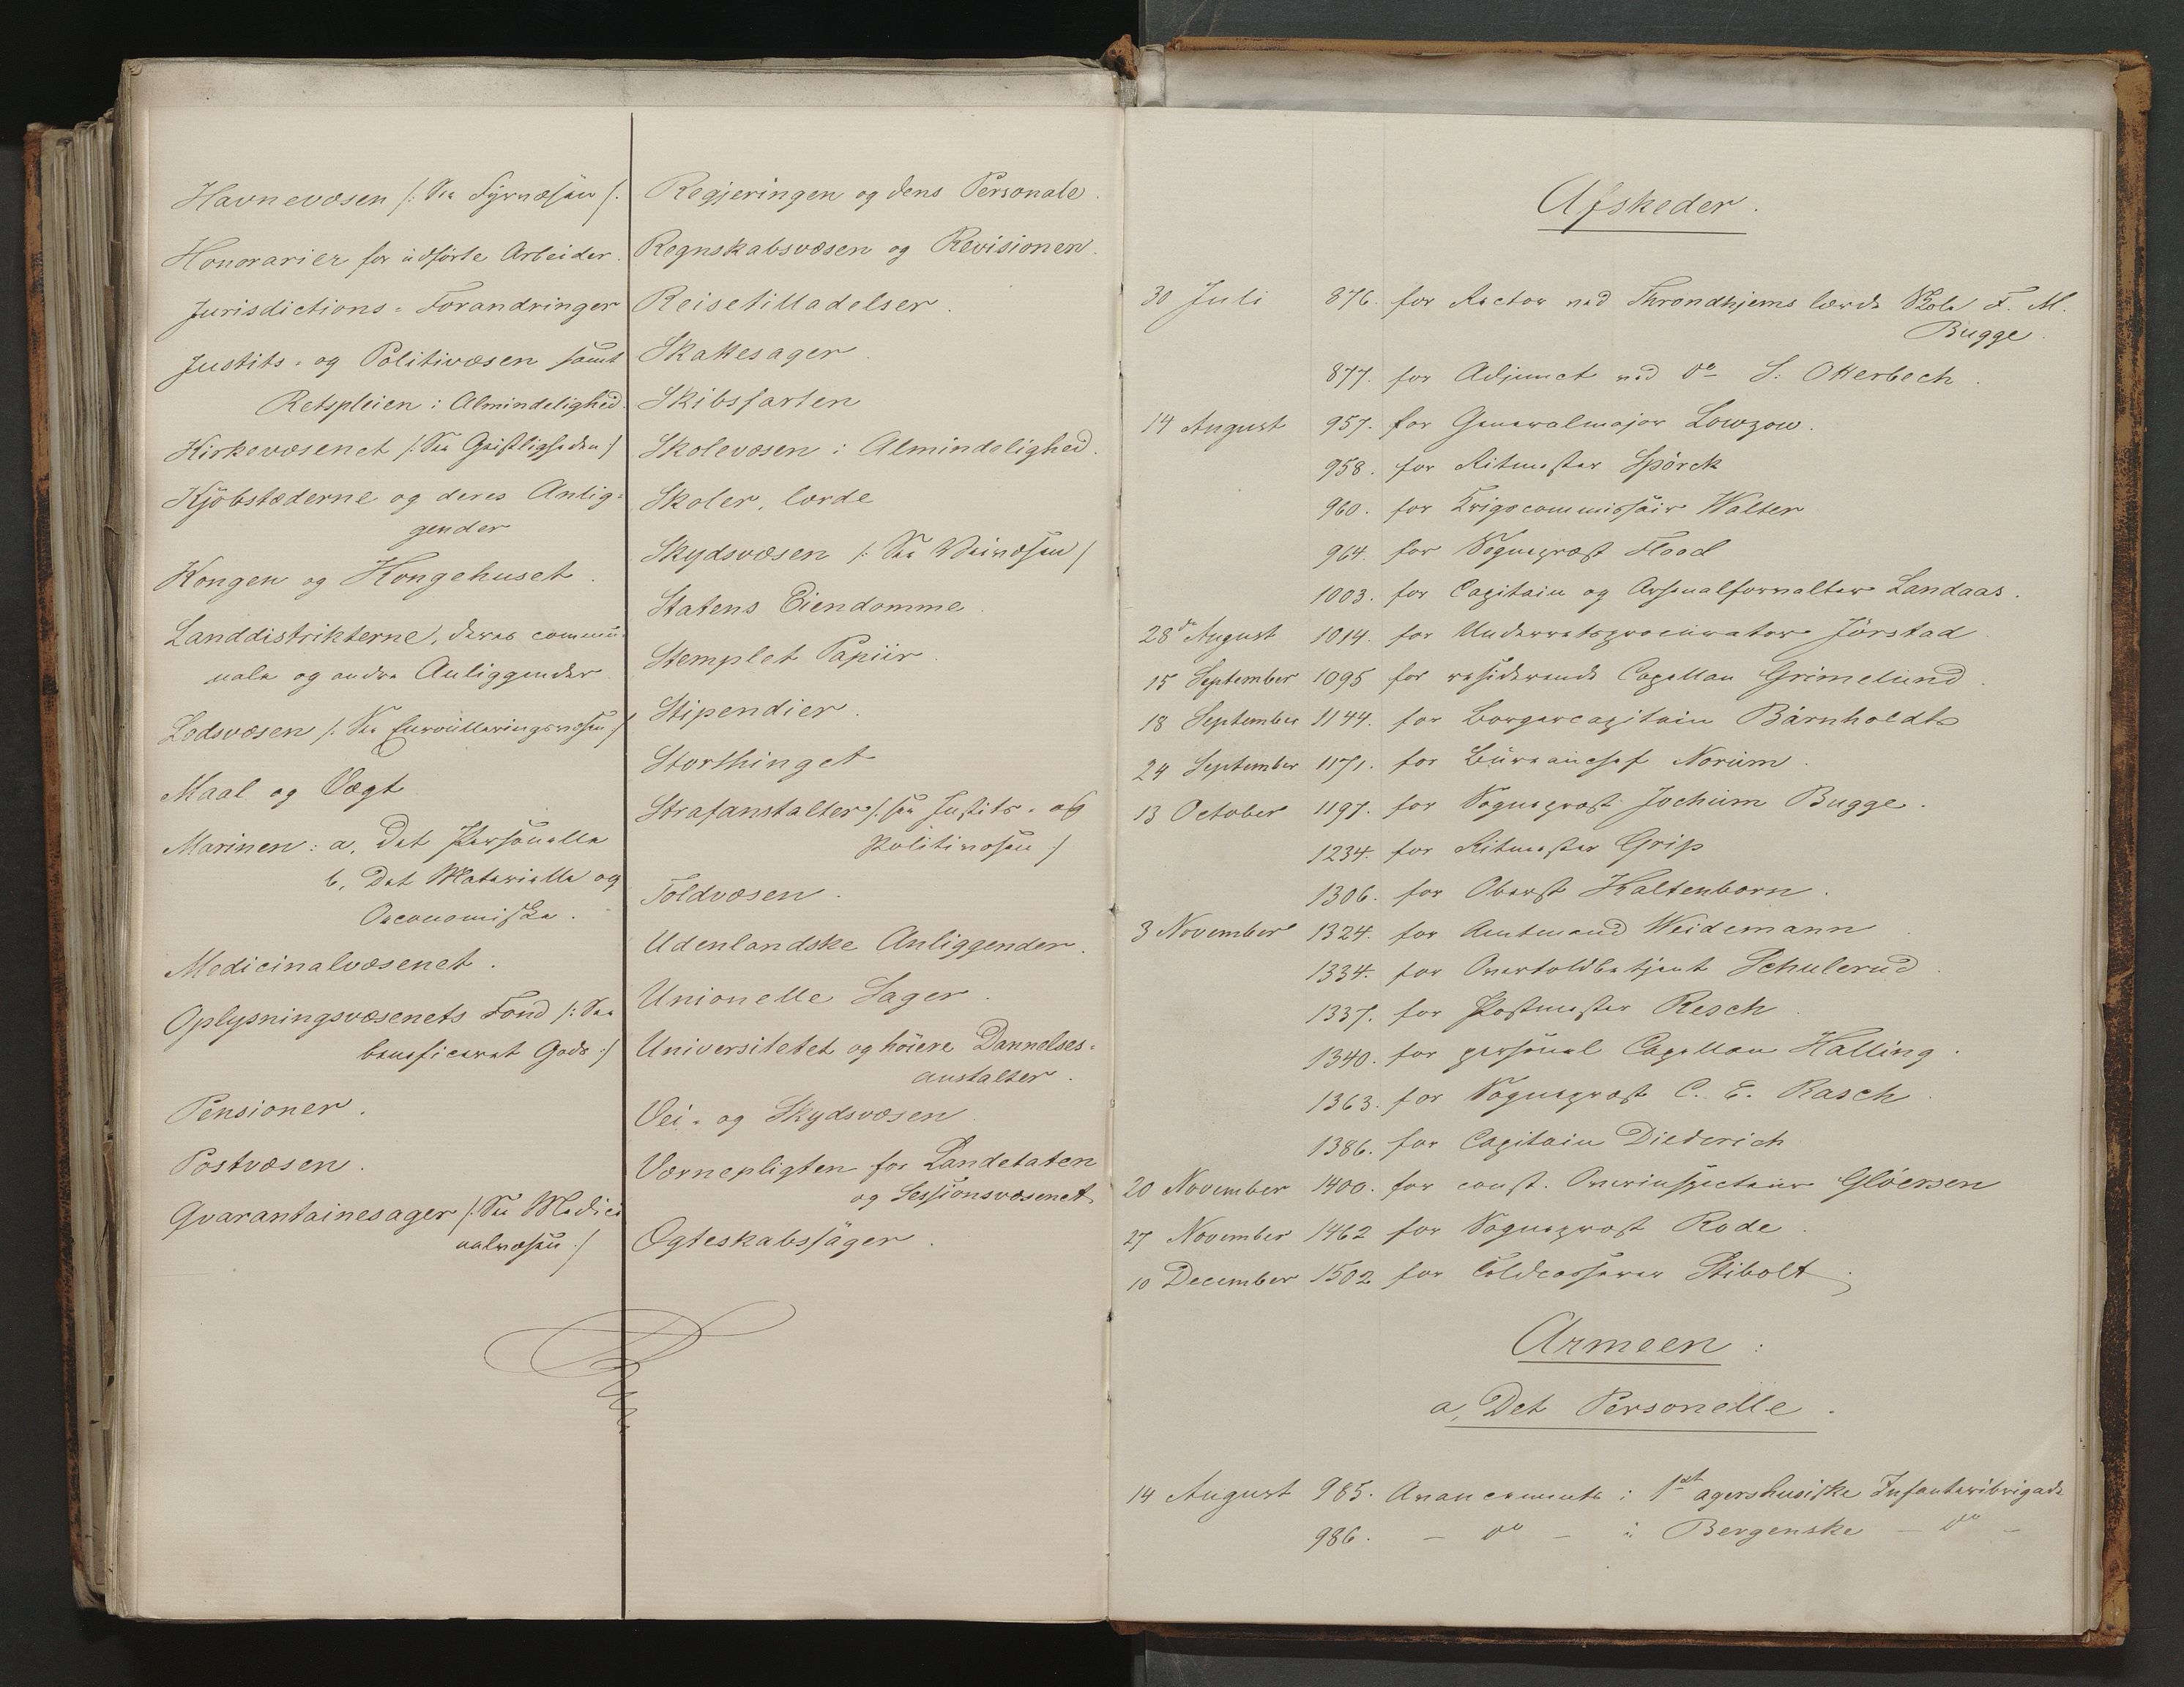 Havnevæsen /: Se Fyrvæsen /.
Honorarier for udførte Arbeider.
Jurisdictions-Forandringer
Justits- og Politivæsen samt
Retspleien i Almindelighed.
Kirkevæsenet /: Se Geistligheden /
Kjöbstæderne og deres Anlig-
gender
Kongen og Kongehuset.
Landdistrikterne, deres commu-
nale og andre Anliggender
Lodsvæsen /: Se Enroulleringsvæsen /
Maal og Vægt
Marinen: a, Det Personelle
b, Det Materielle og
Oeconomiske.
Medicinalvæsenet.
Oplysningsvæsenets Fond /: See
beneficeret Gods :/
Pensioner.
Postvæsen.
Qvarantainesager /: See Medici
nalvæsen :/
Regjeringen og dens Personale.
Regnskabsvæsen og Revisionen.
Reisetilladelser.
Skattesager
Skibsfarten
Skolevæsen i Almindelighed.
Skoler, lærde
Skydsvæsen /: See Veivæsen /
Statens Eiendomme.
Stemplet Papiir.
Stipendier.
Storthinget
Strafanstalter /: see Justits- og
Politivæsen :/
Toldvæsen.
Udenlandske Anliggender.
Unionelle Sager.
Universitetet og høiere Dannelses-
anstalter.
Vei- og Skydsvæsen.
Værnepligten for Landetaten
og Sessionsvæsenet
Ægteskabssager.
Afskeder.
30 Juli 876. for Rector ved Throndhjems lærde Skole F. M.
Bugge.
877. for Adjunct ved do S: Otterbech.
14 August 957. for Generalmajor Lowzow.
958. for Ritmester Spörck
960. for Krigscommissair Walter
964. for Sogneprest Flood
1003. for Capitain og Arsenalforvalter Landaas.
28de August 1014. for Underretsprocurator Jörstad
15 September 1095 for residerende Capellan Grimelund.
18 September 1144. for Borgercapitain Bärnholdt
24 September 1171. for Büreauchef Norum.
13 October 1197. for Sogneprest Jochum Bugge.
1234. for Ritmester Grip
1306. for Oberst Haltenborn.
3 November 1324. for Amtmand Weidemann
1334. for Overtoldbetjent Schulerud.
1337. for Postmester Resch
1340. for personel Capellan Halling.
1363. for Sogneprest C. E. Rasch
1386. for Capitain Diederich
20 November 1400. for const. Overinspecteur Glöersen
27 November 1462 for Sogneprest Rode.
10 December 1502 for Toldcasserer Stibolt.
Armeen:
a, Det Personelle.
14 August 985. Avancements i 1ste agershusiske Infanteribrigade
986. – do – i Bergenske – do –